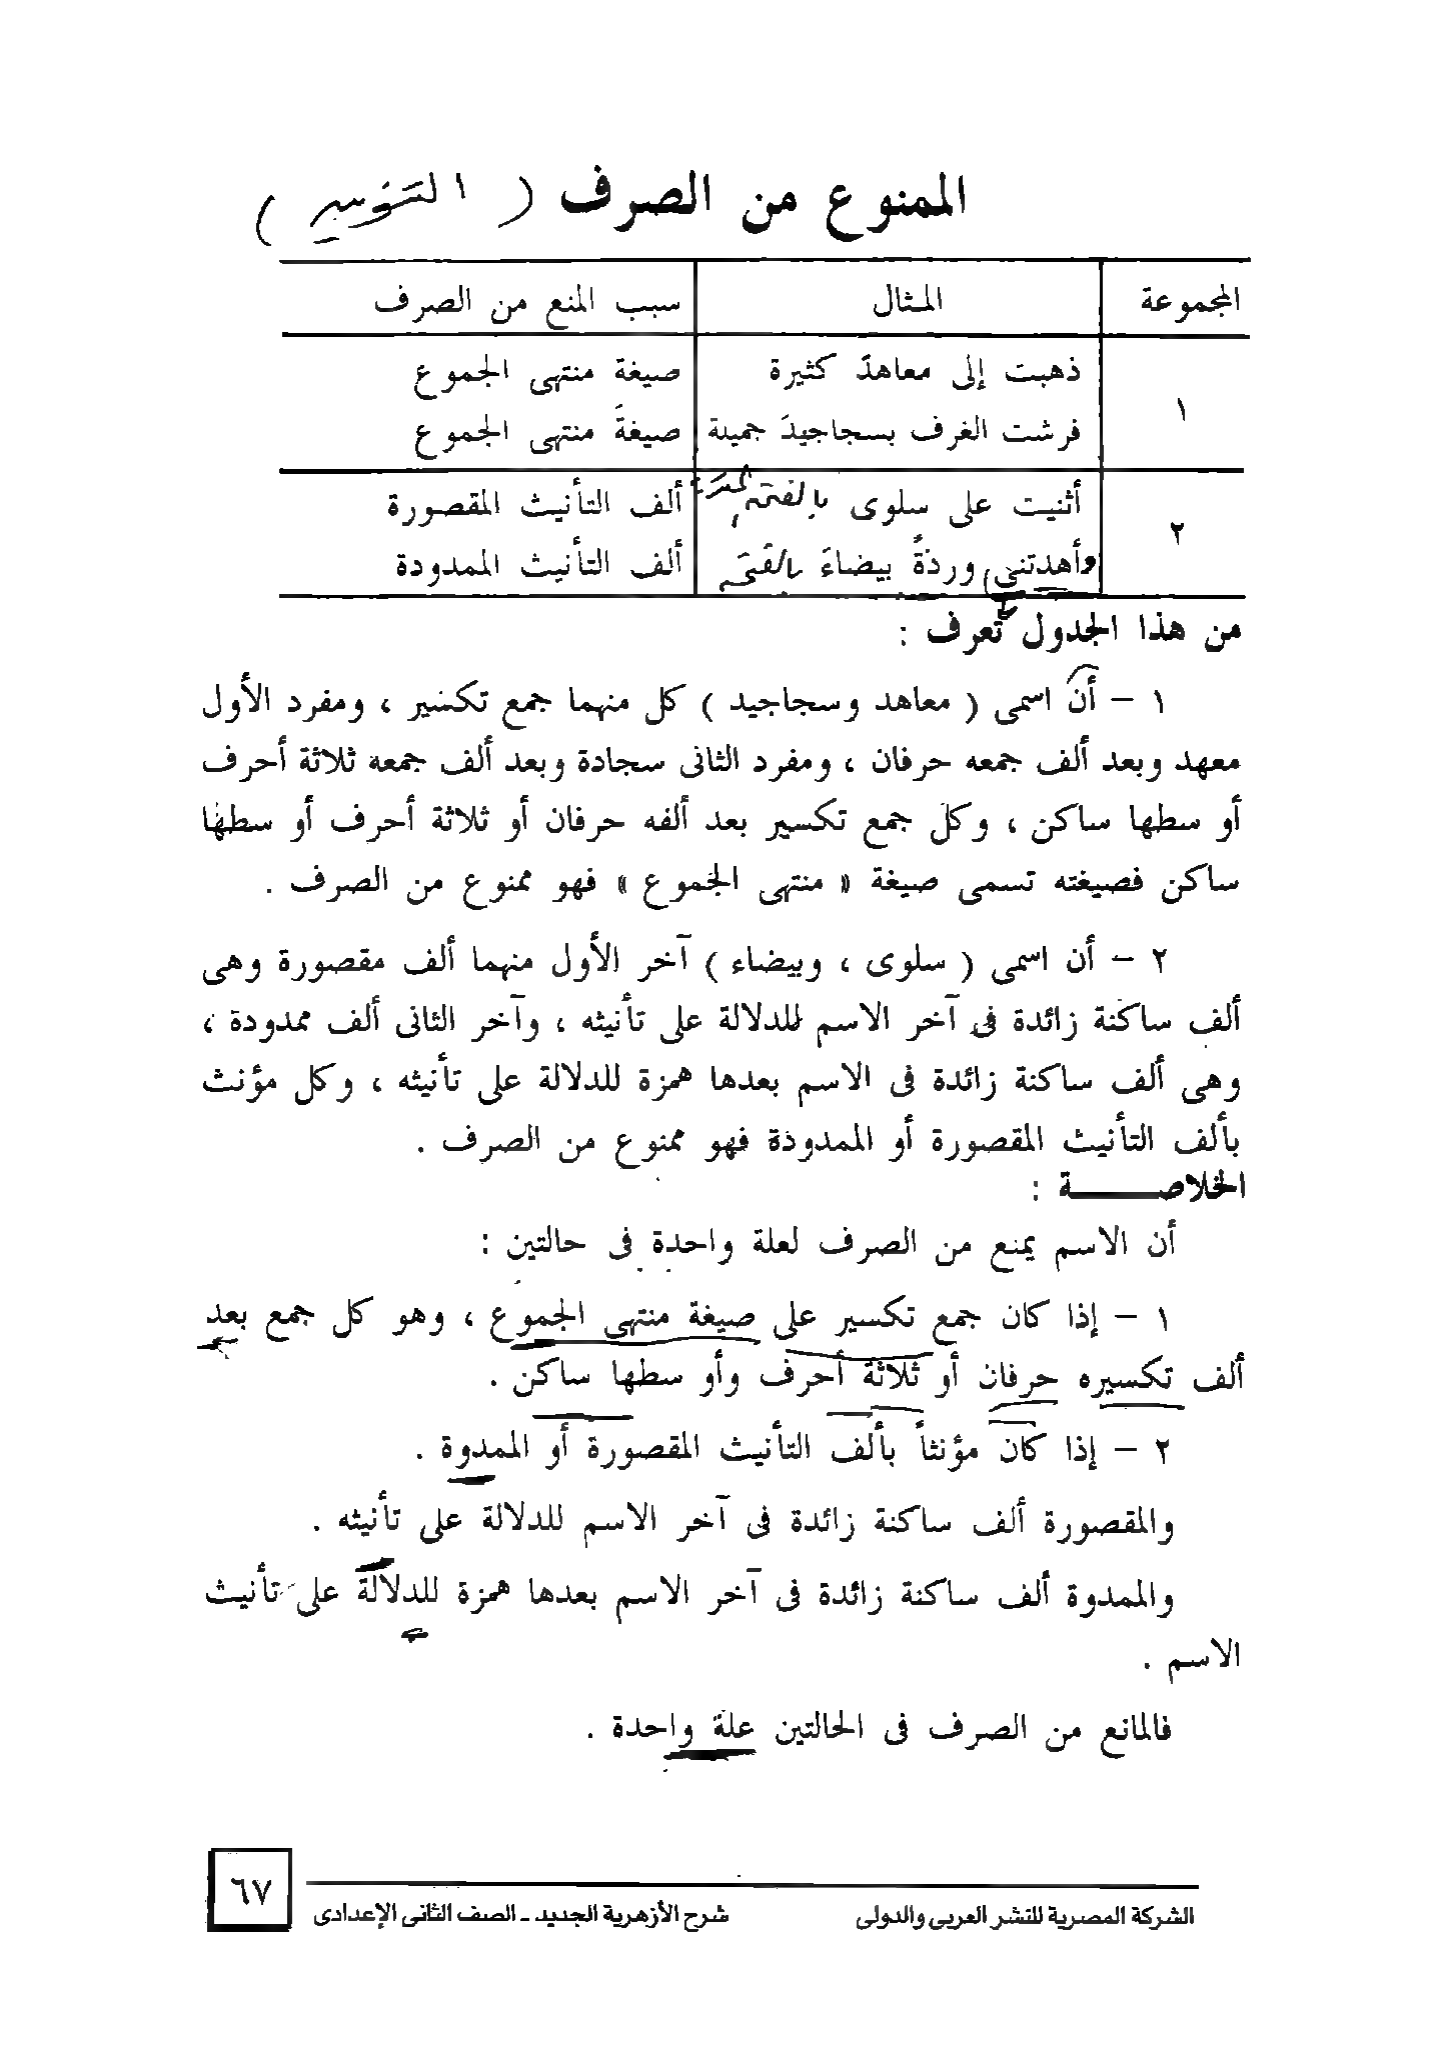 الممنوع من الصرف ( التنوين )
المجموعة المثال سبب المنع من الصرف
١
ذهبت إلى معاهدَ كثيرة صيغة منتهى الجموع
فرشت الغرف بسجاجيدَ جميلة صيغة منتهى الجموع
٢
أثنيت على سلوى بالفتحة ألف التأنيث المقصورة
وأهدتنى وردةً بيضاءَ بالفتحة ألف التأنيث الممدودة
من هذا الجدول تعرف :
١ – أن اسمى ( معاهد وسجاجيد ) كل منهما جمع تكسير ، ومفرد الأول
معهد وبعد ألف جمعه حرفان ، ومفرد الثانى سجادة وبعد ألف جمعه ثلاثة أحرف
أو سطها ساكن ، وكل جمع تكسير بعد ألفه حرفان أو ثلاثة أحرف أو سطها
ساكن فصيغته تسمى صيغة « منتهى الجموع » فهو ممنوع من الصرف .
٢ – أن اسمى ( سلوى ، وبيضاء ) آخر الأول منهما ألف مقصورة وهى
ألف ساكنة زائدة فى آخر الاسم للدلالة على تأنيثه ، وآخر الثانى ألف ممدودة ،
وهى ألف ساكنة زائدة فى الاسم بعدها همزة للدلالة على تأنيثه ، وكل مؤنث
بألف التأنيث المقصورة أو الممدودة فهو ممنوع من الصرف .
الخلاصـــــة :
أن الاسم يمنع من الصرف لعلة واحدة فى حالتين :
١ – إذا كان جمع تكسير على صيغة منتهى الجموع ، وهو كل جمع بعد
ألف تكسيره حرفان أو ثلاثة أحرف وأو سطها ساكن .
٢ – إذا كان مؤنثاً بألف التأنيث المقصورة أو الممدوة .
والمقصورة ألف ساكنة زائدة فى آخر الاسم للدلالة على تأنيثه .
والممدوة ألف ساكنة زائدة فى آخر الاسم بعدها همزة للدلالة على تأنيث
الاسم .
فالمانع من الصرف فى الحالتين علة واحدة .
الشركة المصرية للنشر العربى والدولى شرح الأزهرية الجديد ـ الصف الثانى الإعدادى ٦٧